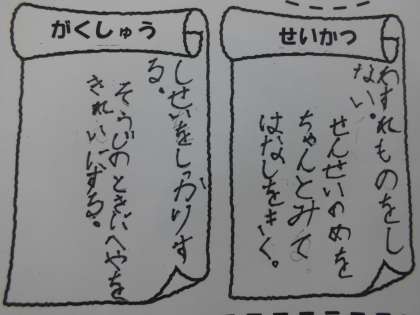 せいかつ
わすれものをし
ない。
せんせいのめを
ちゃんとみて
はなしをきく。
がくしゅう
しせいをしっかりす
る。
そうじのときにへやを
きれいにする。